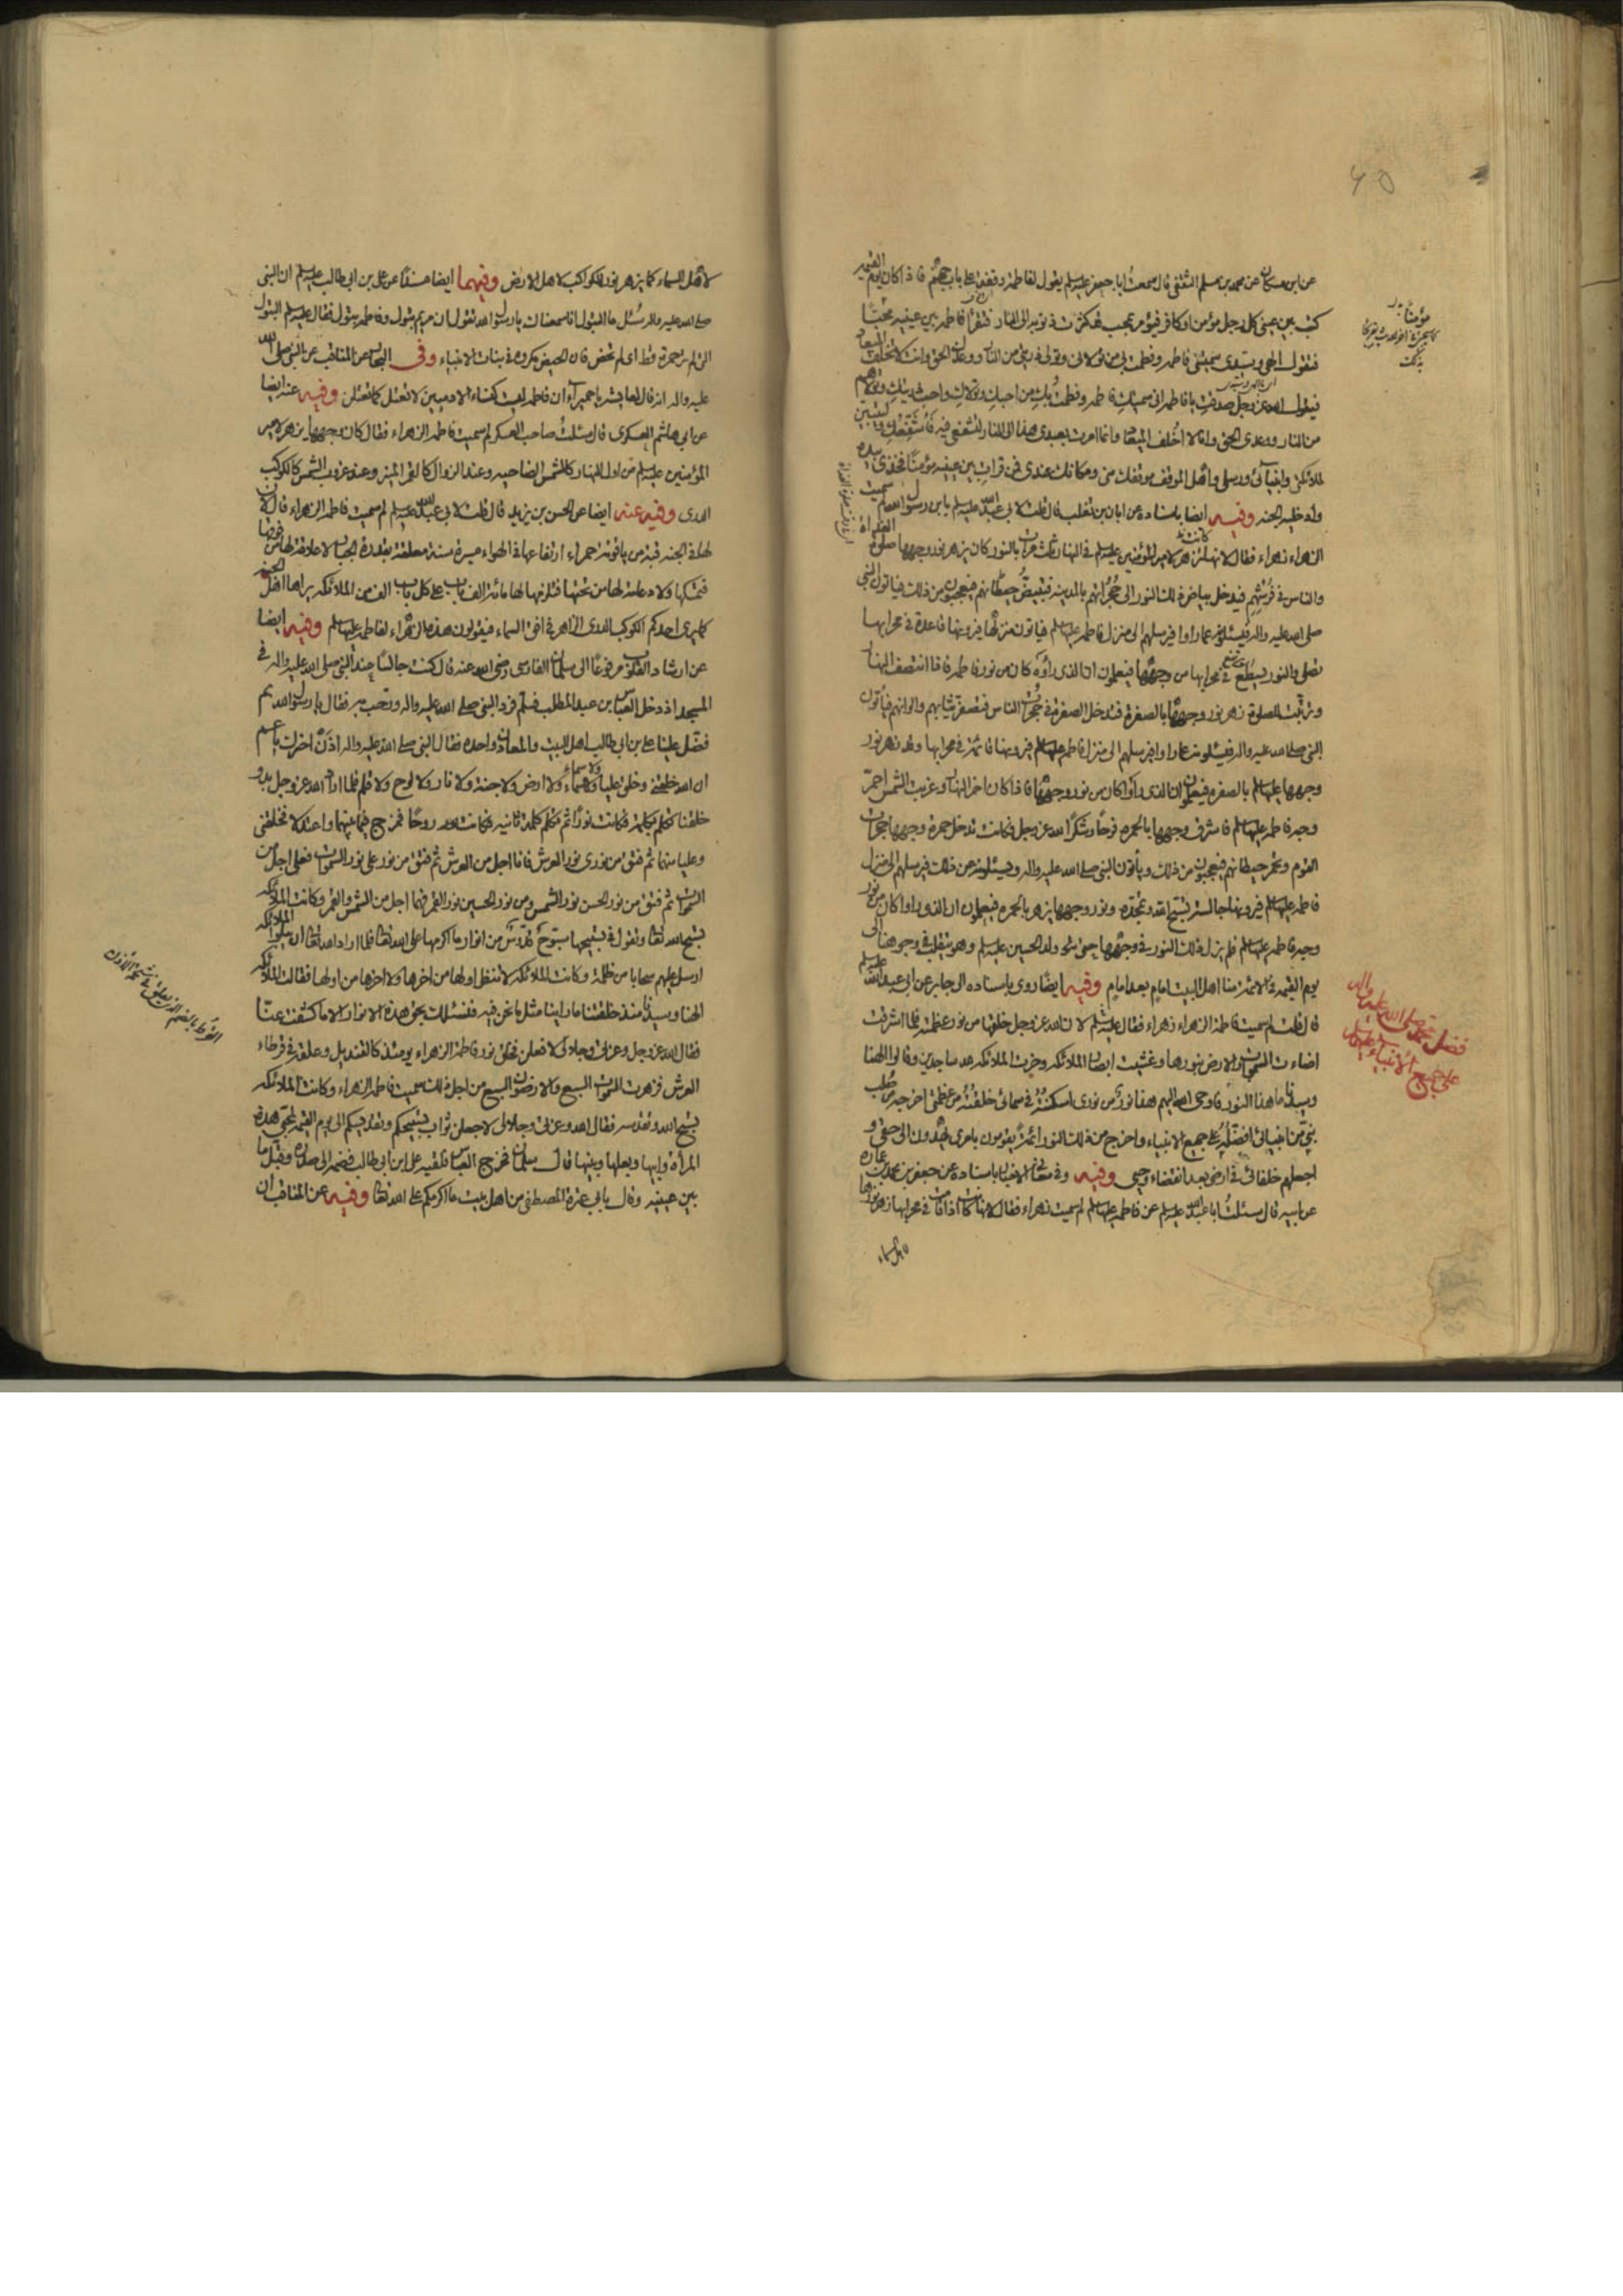 ٤٥
عن ابن مسكان عن محمد بن مسلم الثقفى قال سمعت ابا جعفر عليه السلم يقول لفاطمه وقفة على باب جهنم فاذا كان يوم القيمه
كتب بين عينى كل رجل مؤمن او كافر فيؤمر بمحب قد كثرت ذنوبه الى النار فتقرأ فاطمه بين عينيه محبّا
فتقول الهى وسيدى سميتنى فاطمه وفطمت بى من تولانى وتولى ذريتى من النار ووعدك الحق وانت لا تخلف الميعاد
فيقول الله عز وجل صدقت يا فاطمه انى سميتك فاطمه وفطمت بك من احبك وتولاك واحب ذريتك وتولاهم
من النار ووعدى الحق وانا لا اخلف الميعاد وانما امرت بعبدى هذا الى النار لتشفعى فيه فاشفعك ليتبين
لملائكتى وانبيائى ورسلى واهل الموقف موقفك منى ومكانك عندى فمن قرات بين عينيه مؤمنا فخذى بيده
وادخليه الجنه وفيه ايضا باسناده عن ابان بن تغلب قال قلت لابى عبد الله عليه السلم يا ابن رسول الله لم سميت
الزهراء زهراء فقال لانها تزهر لامير المؤمنين عليه السلم فى النهار ثلث مرات بالنور كان يزهر نور وجهها صلوة الغداة
والناس فى فرشهم فيدخل بياض ذلك النور الى حجراتهم بالمدينه فتبيض حيطانهم فيعجبون من ذلك فياتون النبى
صلى الله عليه واله فيسئلونه عما راوا فيرسلهم الى منزل فاطمه عليها السلم فياتون منزلها فيرونها قاعدة فى محرابها
تصلى والنور يسطع فى محرابها من وجهها فيعلمون ان الذى راوه كان من نور فاطمه فاذا انتصف النهار
وترتبت للصلوة زهر نور وجهها بالصفرة فتدخل الصفرة فى حجرات الناس فتصفر ثيابهم والوانهم فياتون
النبى صلى الله عليه واله فيسئلونه عما راوا فيرسلهم الى منزل فاطمه عليها السلم فيرونها قائمة فى محرابها وقد زهر نور
وجهها عليها السلم بالصفره فيعلمون ان الذى راوا كان من نور وجهها فاذا كان اخر النهار وغربت الشمس احمر
وجه فاطمه عليها السلم فاشرق وجهها بالحمره فرحا وشكرا لله عز وجل فكانت تدخل حمرة وجهها حجرات
القوم وتحمر حيطانهم فيعجبون من ذلك وياتون النبى صلى الله عليه واله ويسئلونه عن ذلك فيرسلهم الى منزل
فاطمه عليها السلم فيرونها جالسة تسبح الله وتمجده ونور وجهها يزهر بالحمره فيعلمون ان الذى راوا كان من نور
وجه فاطمه عليها السلم فلم يزل ذلك النور فى وجهها حتى ولد الحسين عليه السلم وهو يتقلب فى وجوهنا الى
يوم القيمه فى الائمة منا اهل البيت امام بعد امام وفيه ايضا روى باسناده الى جابر عن ابى عبد الله عليه السلم
قال قلت لم سميت فاطمة الزهراء زهراء فقال عليه السلم لان الله عز وجل خلقها من نور عظمته فلما اشرقت
اضاءت السموات والارض بنورها وغشيت ابصار الملائكه وخرت الملائكه لله ساجدين وقالوا الهنا
وسيدنا ما هذا النور فاوحى الله اليهم هذا نور من نورى اسكنته فى سمائى خلقته من عظمتى اخرجه من صلب
نبى من انبيائى افضله على جميع الانبياء واخرج من ذلك النور ائمة يقومون بامرى يهدون الى حقى و
اجعلهم خلفائى فى ارضى بعد انقضاء وحيى وفيه وفى معانى الاخبار باسناده عن جعفر بن محمد بن عماره
عن ابيه قال سئلت ابا عبد الله عليه السلم عن فاطمه عليها السلم لم سميت زهراء فقال لانها كانت اذا قامت فى محرابها زهر نورها
لاهل السماء
فضل محمد صلى الله عليه واله
على جميع الانبياء عليهم السلم
لاهل السماء كما يزهر نور الكواكب لاهل الارض وفيهما ايضا مسندا عن على بن ابى طالب عليه السلم ان النبى
صلى الله عليه واله سئل ما البتول فانا سمعناك يا رسول الله تقول ان مريم بتول وفاطمه بتول فقال عليه السلم البتول
التى لم تر حمرة قط اى لم تحض فان الحيض مكروه فى بنات الانبياء وفى البحار عن المناقب عن النبى صلى الله
عليه واله انه قال لعايشه يا حميراء ان فاطمه ليست كنساء الادميين لا تعتل كما تعتلن وفيه عنه ايضا
عن ابى هاشم العسكرى قال سئلت صاحب العسكر لم سميت فاطمه الزهراء فقال كان وجهها يزهر لامير
المؤمنين عليه السلم من اول النهار كالشمس الضاحيه وعند الزوال كالقمر المنير وعند غروب الشمس كالكوكب
الدرى وفيه عنه ايضا عن الحسن بن يزيد قال قلت لابى عبد الله عليه السلم لم سميت فاطمه الزهراء قال لان
لها فى الجنه قبة من ياقوتة حمراء ارتفاعها فى الهواء مسيرة سنة معلقة بقدرة الجبار لا علاقة لها من فوقها
فتمسكها ولا دعامة لها من تحتها فتلزمها لها مائة الف باب على كل باب الف من الملائكه يراها اهل الجنه
كما يرى احدكم الكوكب الدرى الزاهر فى افق السماء فيقولون هذه الزهراء لفاطمه عليها السلم وفيه ايضا
عن ارشاد القلوب مرفوعا الى سلمان الفارسى رضى الله عنه قال كنت جالسا عند النبى صلى الله عليه واله فى
المسجد اذ دخل العباس بن عبد المطلب فسلم فرد النبى صلى الله عليه واله ورحب به فقال يا رسول الله بم
فضل علينا على بن ابى طالب اهل البيت والمعادن واحدة فقال النبى صلى الله عليه واله اذن اخبرك يا عم
ان الله خلقنى وخلق عليا ولا سماء ولا ارض ولا جنة ولا نار ولا لوح ولا قلم فلما اراد الله عز وجل بدو
خلقنا تكلم بكلمة فكانت نورا ثم تكلم كلمة ثانيه فكانت روحا فمزج فيما بينهما واعتدلا فخلقنى
وعليا منهما ثم فتق من نورى نور العرش فانا اجل من العرش ثم فتق من نور على نور السموات فعلى اجل من
السموات ثم فتق من نور الحسن نور الشمس ومن نور الحسين نور القمر فهما اجل من الشمس والقمر وكانت الملائكه
تسبح الله تعالى وتقول فى تسبيحها سبوح قدوس من انوار ما اكرمها على الله تعالى فلما اراد الله تعالى ان يبلو الملائكه
ارسل عليهم سحابا من ظلمة وكانت الملائكه لا تنظر اولها من اخرها ولا اخرها من اولها فقالت الملائكه
الهنا وسيدنا منذ خلقتنا ما راينا مثل ما نحن فيه فنسئلك بحق هذه الانوار الا ما كشفت عنا
فقال الله عز وجل وعزتى وجلالى لافعلن فخلق نور فاطمة الزهراء يومئذ كالقنديل وعلقه فى قرط
العرش فزهرت السموات السبع والارضون السبع من اجل ذلك سميت فاطمه الزهراء وكانت الملائكه
تسبح الله وتقدسه فقال الله وعزتى وجلالى لاجعلن ثواب تسبيحكم وتقديسكم الى يوم القيمه لمحبى هذه
المراة وابيها وبعلها وبنيها قال سلمان فخرج العباس فلقيه على ابن ابى طالب فضمه الى صدره وقبل ما
بين عينيه وقال بابى عترة المصطفى من اهل بيت ما اكرمكم على الله تعالى وفيه عن المناقب ان
القرط بالضم الذى يعلق فى شحمة الاذن